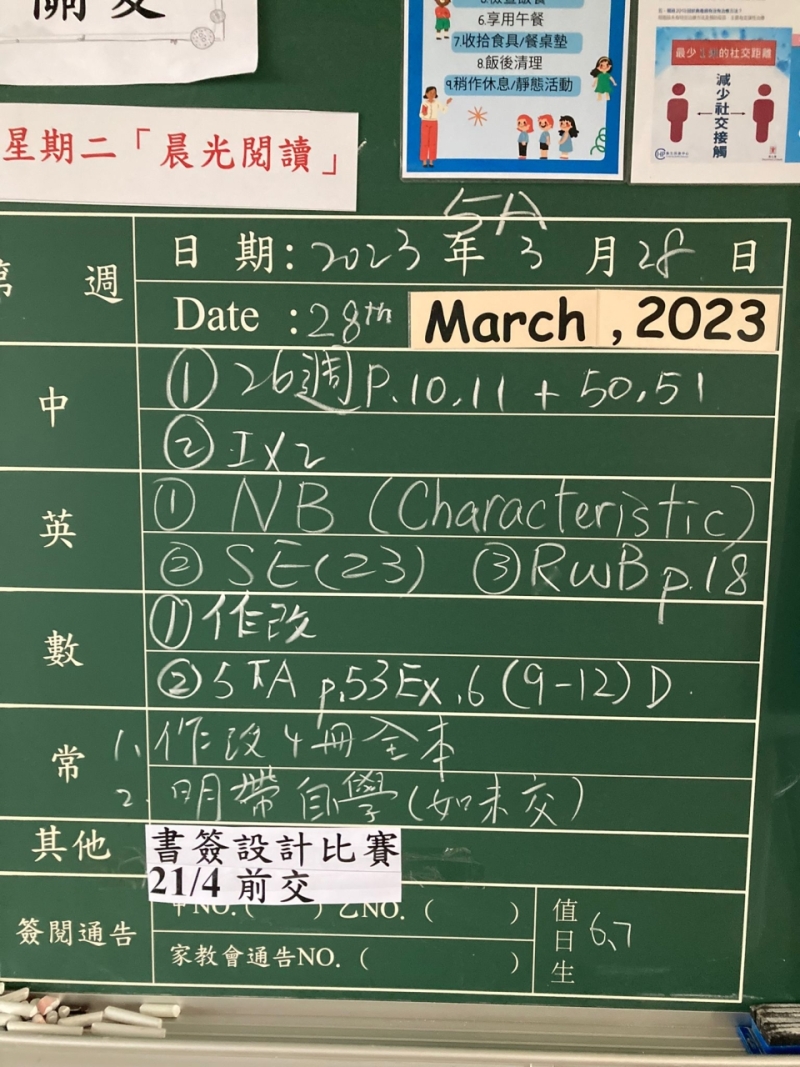 6.享用午餐
7.收拾食具/餐桌墊
8.飯後清理
9.稍作休息/靜態活動
最少1米的社交距離
減少社交接觸
星期二「晨光閱讀」
5A
週
日期:2023年3月28日
Date :28th March,2023
中
① 26週P.10,11 + 50,51
②
英
① NB (Characteristic)
② SE(23) ③RWB p.18
數
①作改
② 5下A p.53 Ex.6 (9-12) D.
常
1. 作改4冊全本
2. 明帶自學(如未交)
其他
書簽設計比賽
21/4 前交
簽閱通告
甲NO.( ) 乙NO. ( )
家教會通告NO. ( )
值日生 6,7